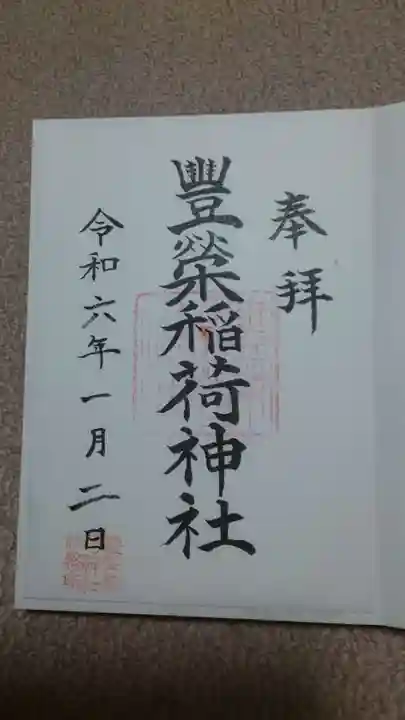 奉拝
豐榮稲荷神社
令和六年一月二日